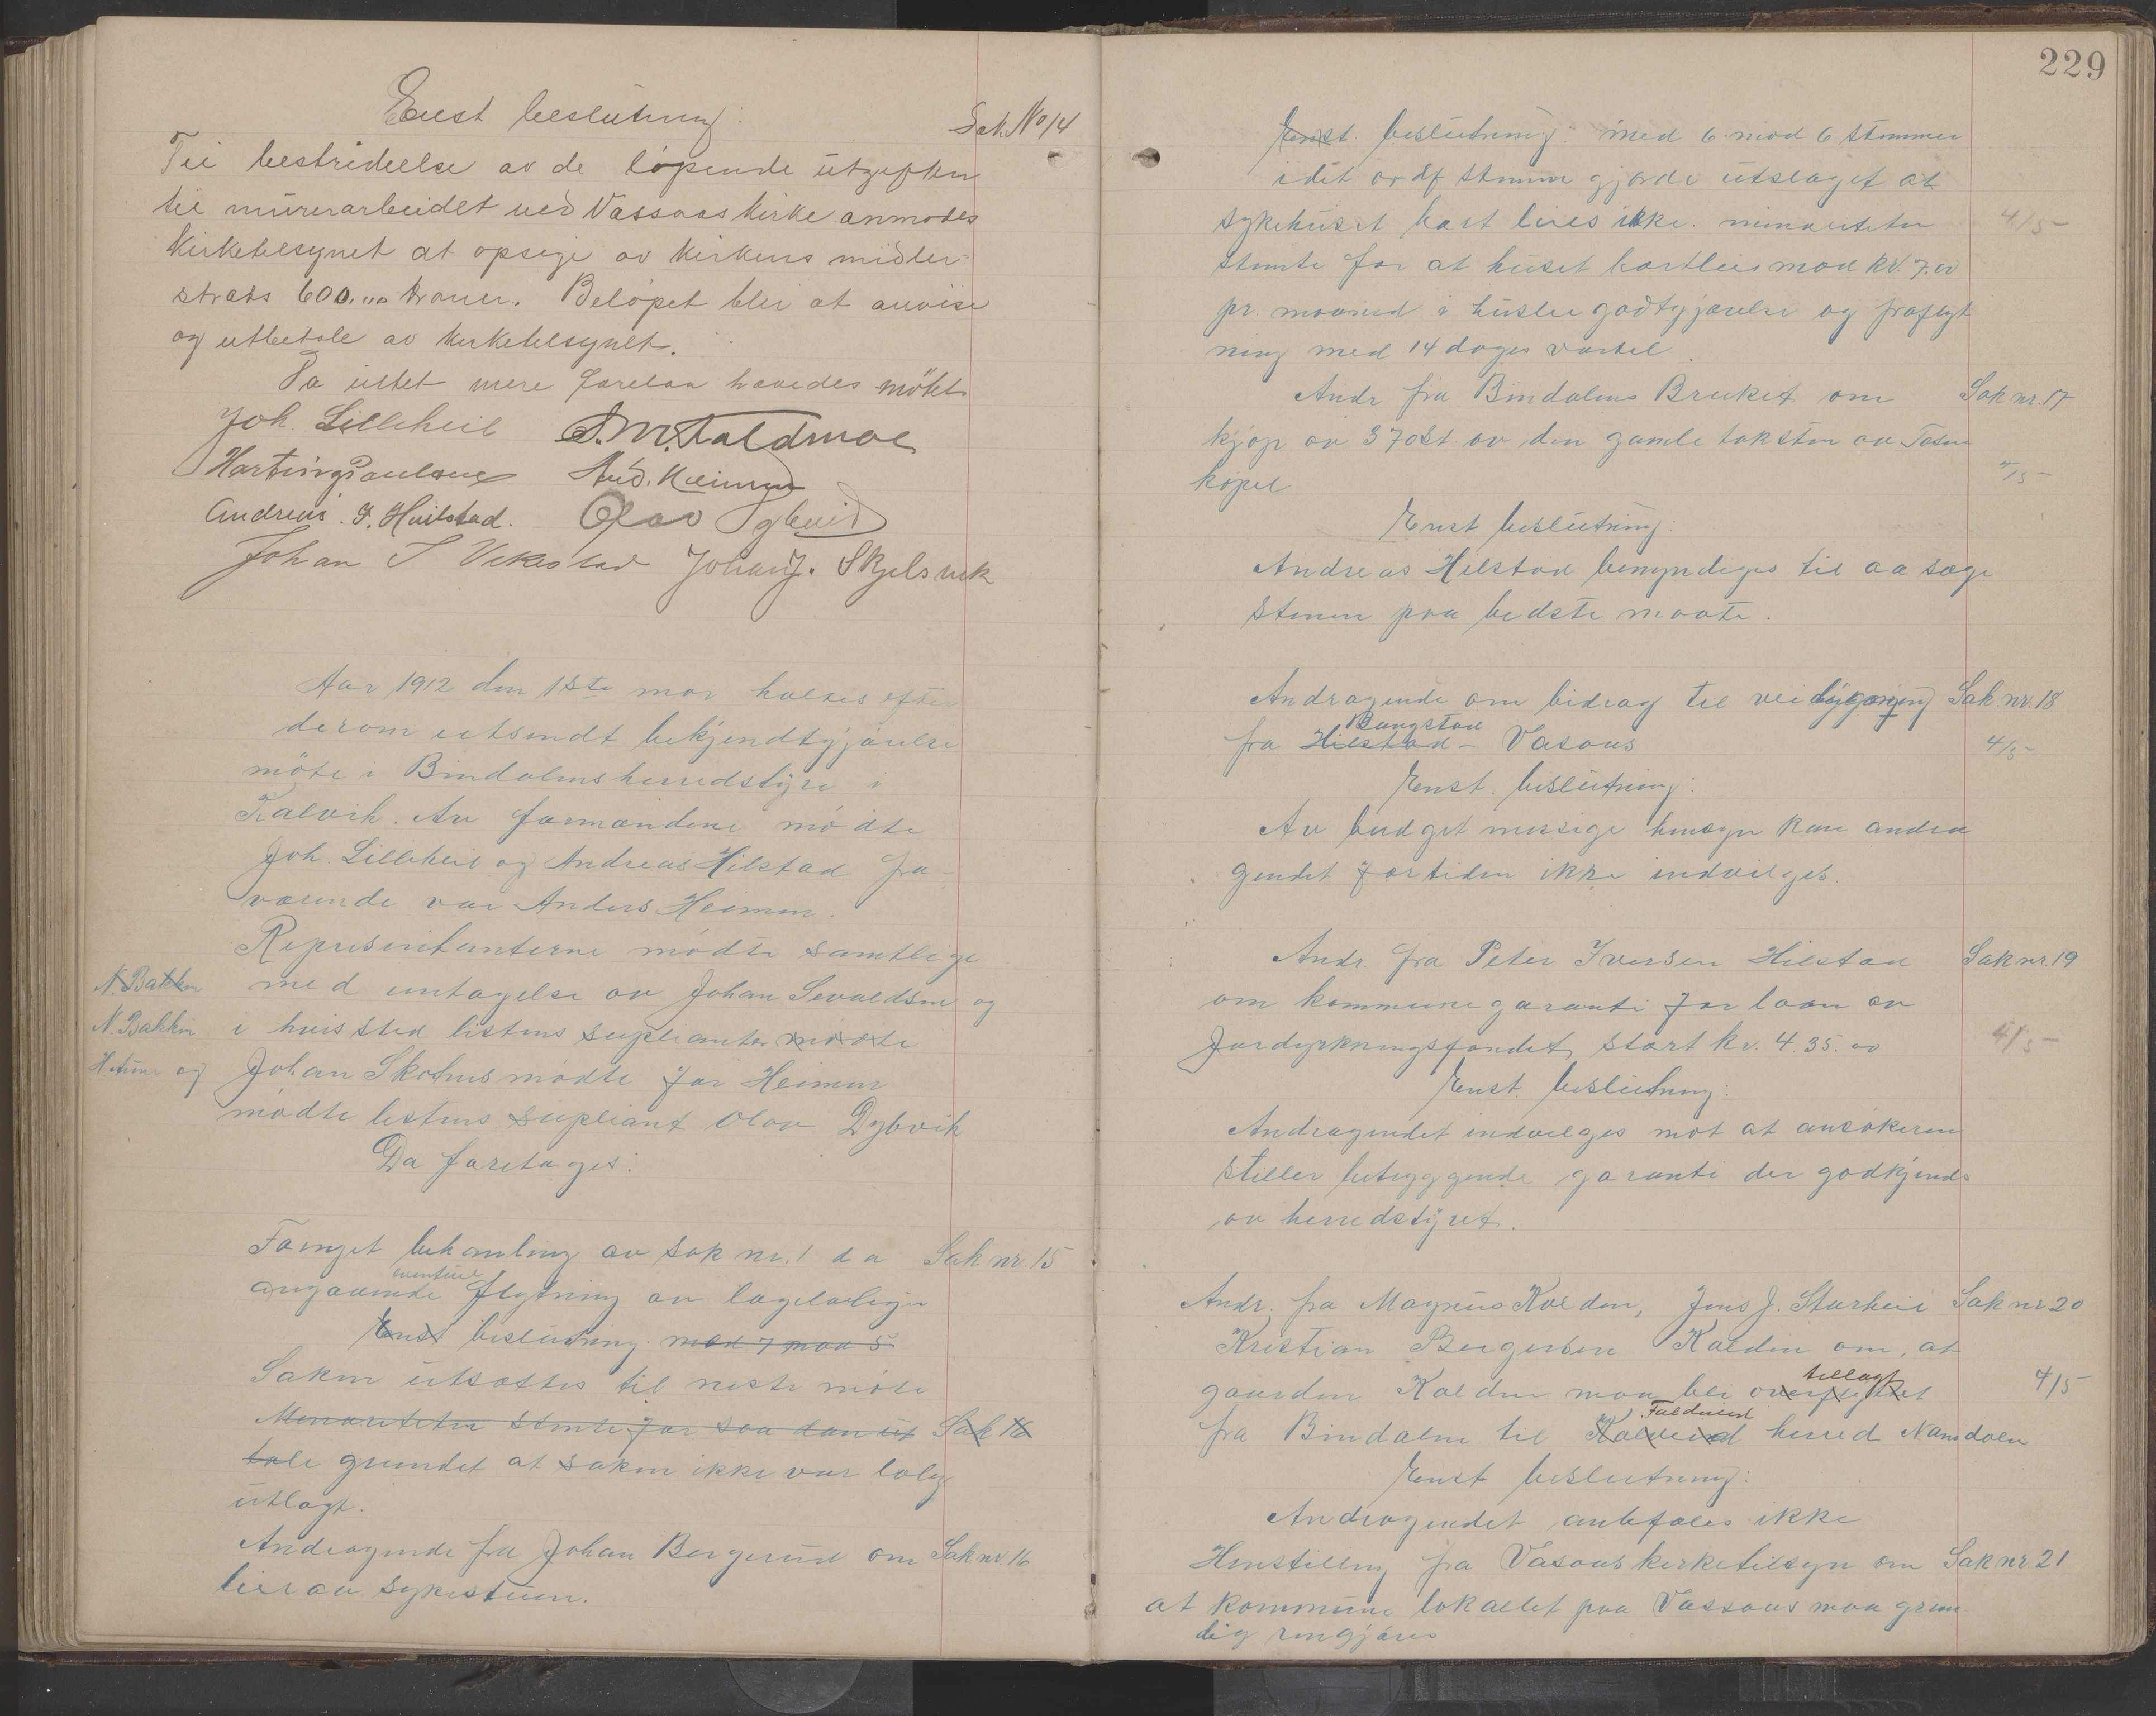 Enst beslutning: Sak No 14
Til bestridelse av de løpende utgifter
til murerarbeidet ved Vassaas kirke anmodes
kirketilsynet at opsige av kirkens midler
straks 600.00 kroner. Beløpet blir at anvise
og utbetale av kirketilsynet.
Da intet mere forelaa hævedes møtet
Joh. Lilleheil
Harting Paulsen And. Heimen
Andreas J. Heilstad. Olav
Johan J Vikestad Johan J. Skjelsvik
Aar 1912 den 1ste mai holtes efter
derom utsendt bekjendtgjørelse
møte i Bindalens herredstyre i
Kalvik. Av formændene mødte
Joh. Lilleheil og Andreas Hilstad fra-
værende var Anders Heimen.
Representanterne mødte samtlige
N. Bakken med untagelse av Johan Sevaldsen og
N. Bakken i hvis sted listens supleanter mødte
Heimen og Johan Skotnes mødte for Heimen
mødte listens supleant Olav Dybvik
Da foretages:
Fornyet behanling av sak nr. 1 d a Sak nr 15
eventuel
angaaende flytning av lægebolign
Enst beslutning med 7 mod 5
Saken utsættes til neste møte
Minoriteten stemte for saadan ut Sak 16
tale grundet at saken ikke var lolig
utlagt.
Andragende fra Johan Bergerud om Sak nr. 16
leie av sykestuen.
229
Enst. beslutning: med 6 mod 6 stemmer
idet ordf stemme gjorde utslaget at
sykehuset bort leies ikke. minoriteten 4/5
stemte for at huset bortleies mod kr. 7.00
pr. maaned i husleie godtgjørelse og fraflyt
ning med 14 dages varsel.
Andr fra Bindalens Bruket om Sak nr. 17
kjøp av 370 St. av den gamle taksten av Tosen
kapel 4/5
Enst beslutning:
Andreas Hilstad bemyndiges til aa sælge
stenen paa bedste maate.
Andragende om bidrag til veibygging Sak. nr. 18
Bangstad
fra Hilstad - Vasaas 4/5
Enst. beslutning:
Av budget messige hensyn kan andra
gendet fortiden ikke indvilges.
Andr. fra Peter Iversen Hilstad Sak nr. 19
om kommune garanti for laan av
Jordyrkningsfondet stort kr. 435.00 4/5
Enst. beslutning:
Andragendet indvilges mot at ansøkeren
stiller betryggende garanti der godkjendes
av herredstyret.
Andr. fra Magnus Kolden, Jens J. Storheil Sak nr 20
Kristian Bergersen Kolden om, at
tillagt
gaarden Kolden maa bli overflyttet 4/5
Foldereid
fra Bindalen til Kolvereid herred Namdalen
Enst beslutning:
Andragendet anbefales ikke
Henstilling fra Vasaas kirketilsyn om Sak nr. 21
at kommune lokallet paa Vassaas maa grun
dig rengjøres